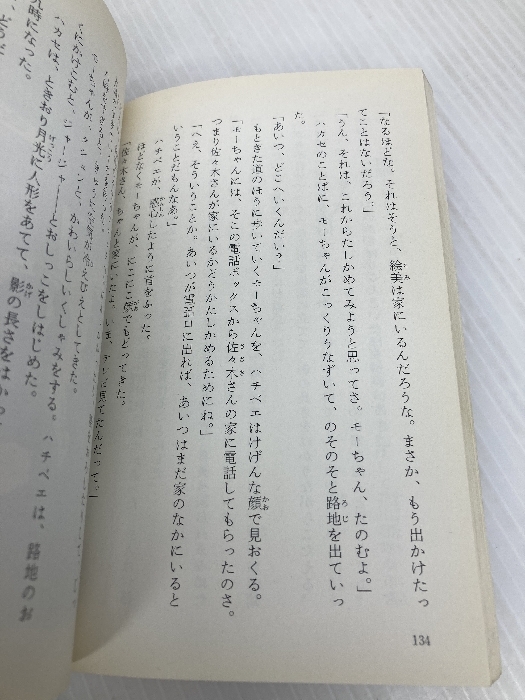 「なるほどな。それはそうと、絵美は家にいるんだろうな。まさか、もう出かけたっ
てことはないだろう。」
「うん、それは、これからたしかめてみようと思ってさ。モーちゃん、たのむよ。」
ハカセのことばに、モーちゃんがこっくりうなずいて、のそのそと路地を出ていっ
た。
「あいつ、どこへいくんだい？」
もときた道のほうに歩いていくモーちゃんを、ハチベエはけげんな顔で見おくる。
「モーちゃんには、そこの電話ボックスから佐々木さんの家に電話してもらったのさ。
つまり佐々木さんが家にいるかどうかたしかめるためにね。」
「へえ、そういうことか。あいつが電話口に出れば、あいつはまだ家のなかにいると
いうことだもんなあ。」
ハチベエが、感心したように首をふった。
ほどなくモーちゃんが、にこにこ顔でもどってきた。
「佐々木さん、ちゃんと家にいたよ。いま、テレビ見てたんだって。」
ハカセは、ときおり月光に人形をあてて、影の長さをはかっ
九時になった。
134